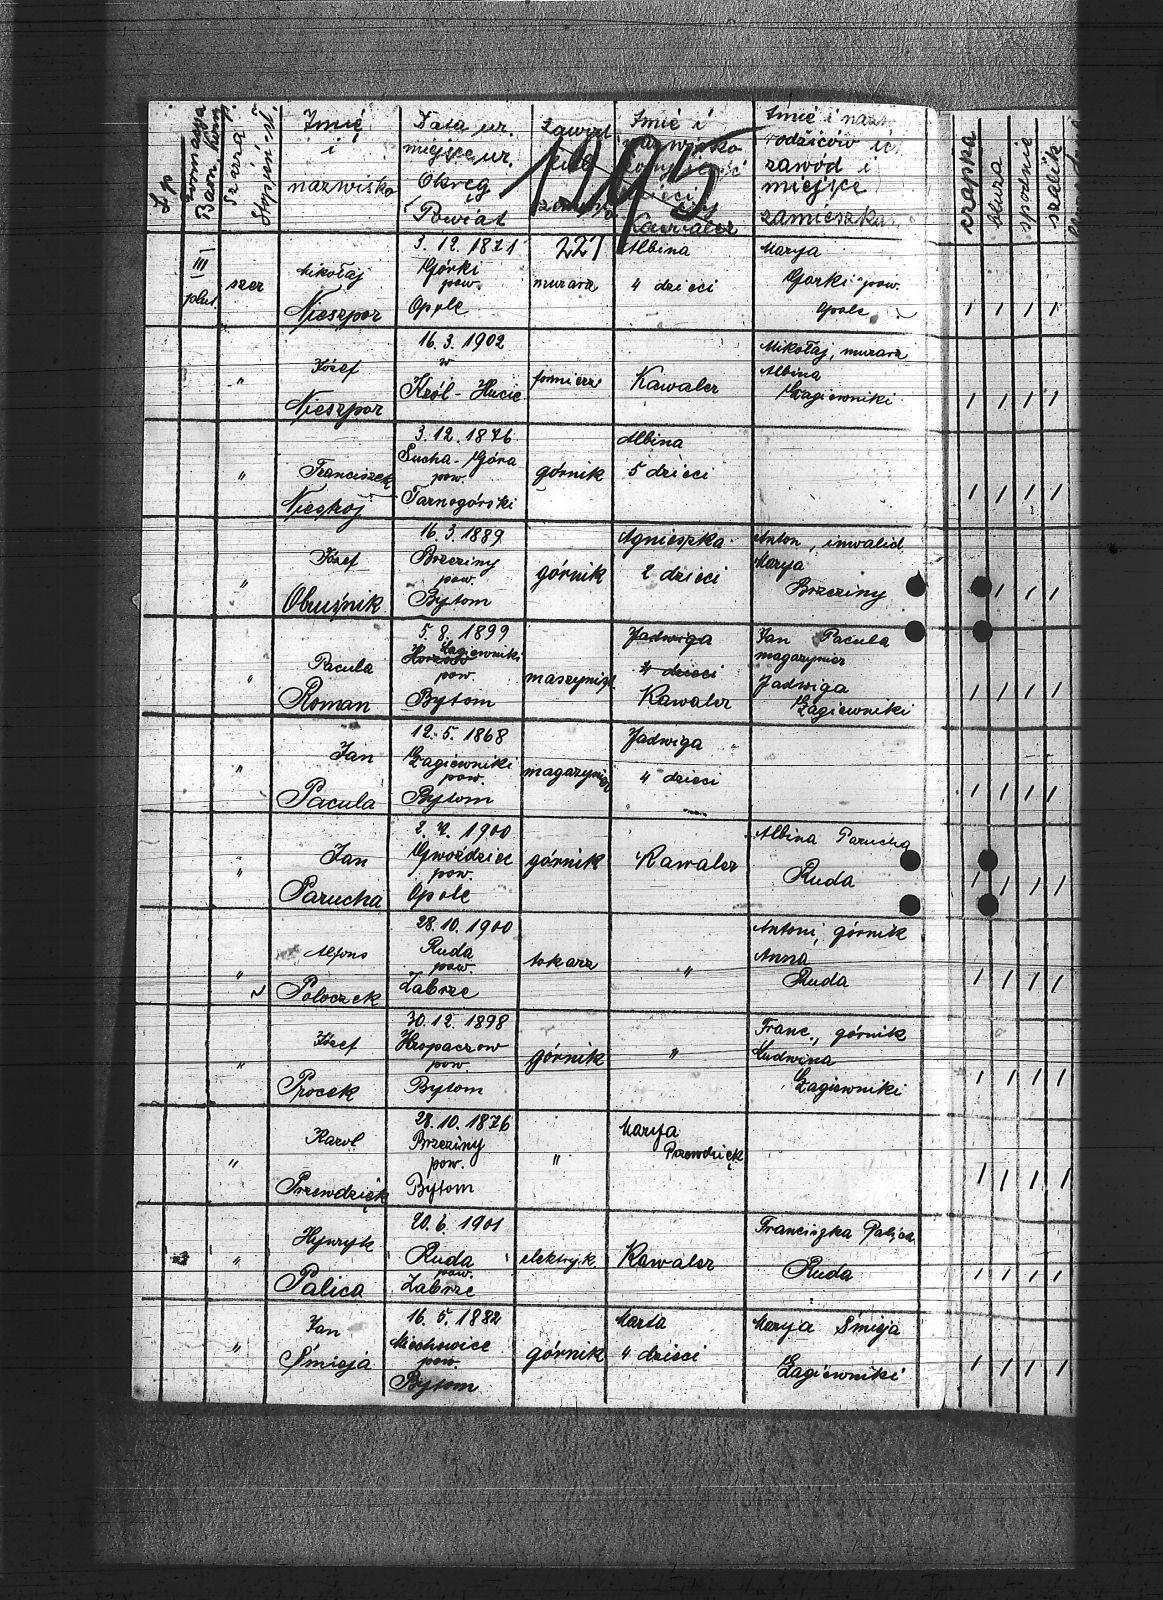 L.p.
Formacya
Baon, Komp.
Szarża
Stopień sł.
Imię
i
nazwisko
Data ur.
miejsce ur.
Okręg
Powiat
Zawód
Imię i
nazwisko
Kawaler
Imię i nazw
rodziców ic
zawód i
miejsce
zamieszka
czapka
bluza
spodnie
szalik
1995
227
III
plut.
szer
Mikołaj
Nieszpor
3.12.1871
Górki
pow.
Opole
murarz
Albina
4 dzieci
Marya
Gorki pow.
Opole
/ / / /
"
Józef
Nieszpor
16.3.1902
w
Król-Hucie
formierz
Kawaler
Mikołaj, murarz
Albina
Łagiewniki
/ / / /
"
Franciszek
Nieskoj
3.12.1876
Sucha-Góra
pow.
Tarnogórski
górnik
Albina
5 dzieci
/ / / /
"
Józef
Obruśnik
16.3.1889
Brzeziny
pow.
Bytom
górnik
Agnieszka
2 dzieci
Anton, inwalid
Marya
Brzeziny
/ / /
"
Pacula
Roman
5.8.1899
Łagiewniki
pow.
Bytom
maszynist
Jadwiga
4 dzieci
Kawaler
Jan Pacula
magazynier
Jadwiga
Łagiewniki
/ / / /
"
Jan
Pacula
12.5.1868
Łagiewniki
pow.
Bytom
magazynier
Jadwiga
4 dzieci
/ / / /
"
Jan
Parucha
2.4.1900
Gwoździec
pow.
Opole
górnik
Kawaler
Albina Parucha
Ruda
/ / / /
"
Alfons
Poloczek
28.10.1900
Ruda
pow.
Zabrze
tokarz
"
Antoni, górnik
Anna
Ruda
/ / / /
"
Józef
Procek
30.12.1898
Hropaczow
pow
Bytom
górnik
"
Franc., górnik
Ludwina
Łagiewniki
/ / / /
"
Karol
Przewdzięk
28.10.1876
Brzeziny
pow.
Bytom
"
Marya
Przewdzięk
/ / / /
"
Hynryk
Palica
20.6.1901
Ruda
pow.
Zabrze
elektryk.
Kawaler
Franciszka Palica
Ruda
/ / / /
"
Jan
Śmieja
16.5.1882
Miechowice
pow.
Bytom
górnik
Marta
4 dzieci
Marya Śmieja
Łagiewniki
/ / / /